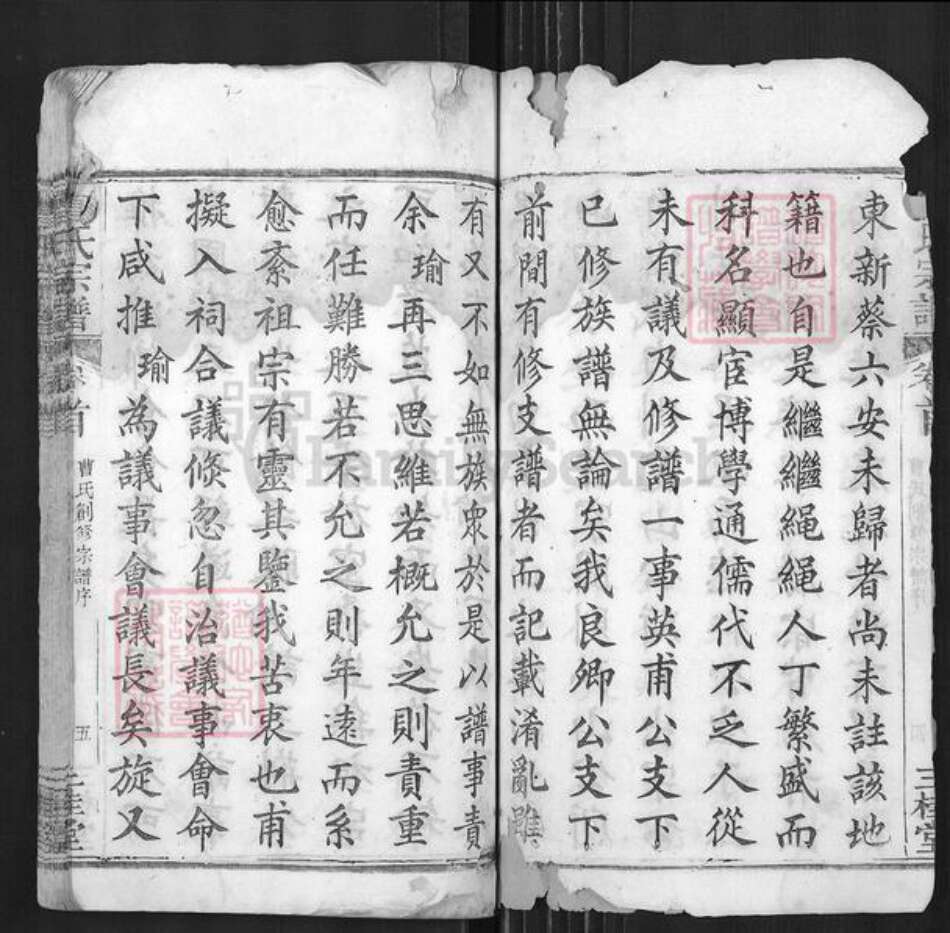 東新蔡六安未歸者尚未註該地
籍也自是繼繼繩繩人丁繁盛而
科名顯宦博學通儒代不乏人從
未有議及修譜一事英甫公支下
已修族譜無論矣我良卿公支下
前間有修支譜者而記載淆亂雖
有又不如無族眾於是以譜事責
余瑜再三思維若概允之則責重
而任難勝若不允之則年遠而系
愈紊祖宗有靈其鑒我苦衷也甫
擬入祠合議倏忽自治議事會命
下咸推瑜為議事會議長矣旋又
氏宗譜
卷首
曹氏創修宗譜序
五
三桂堂
三桂堂
FamilySearch